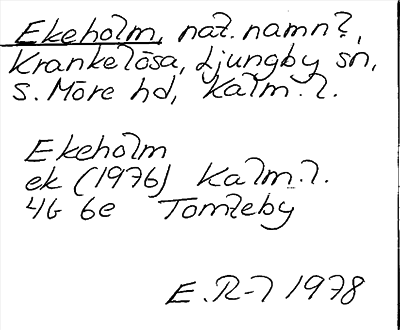 Ekeholm, nat. namn?,
Krankelösa, Ljungby sn,
S. Möre hd, Kalm. l.
Ekeholm
ek (1976) Kalm. l.
4G 6e Tomteby
E. R-l 1978